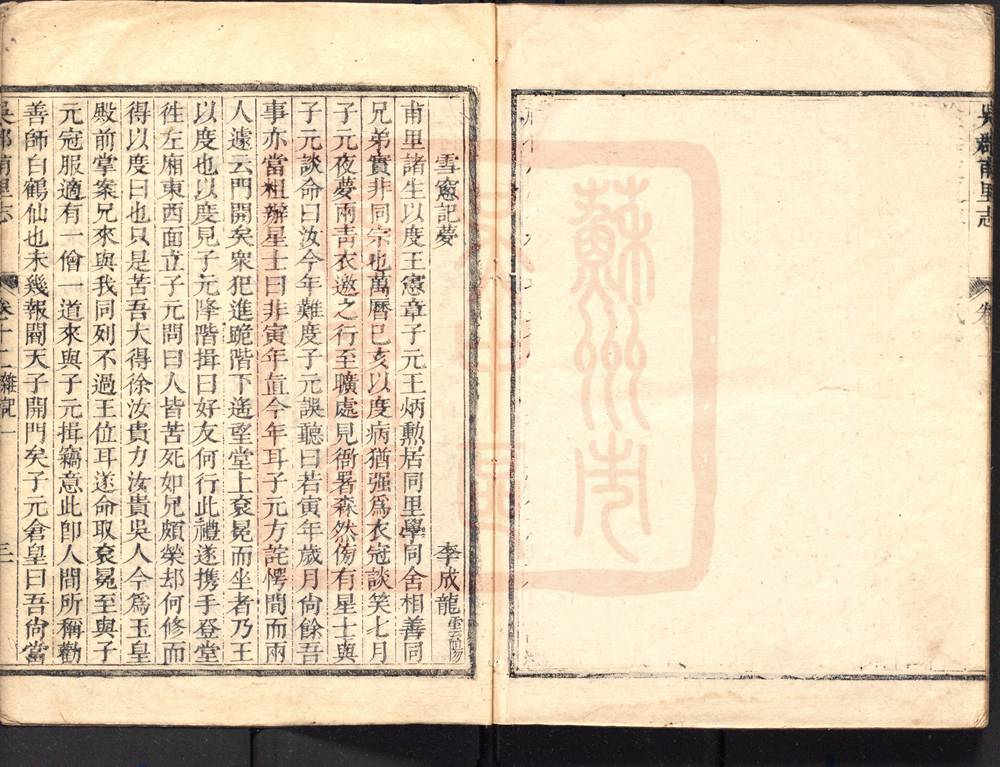 吳郡甫里志
卷
雪窓記夢
李成龍雲陽
甫里諸生以度王憲章子元王炳勲居同里學同舍相善同
兄弟實非同宗也萬曆己亥以度病猶强爲衣冠談笑七月
子元夜夢兩青衣邀之行至曠處見衙署森然傍有星士與
子元談命曰汝今年難度子元誤聽曰若寅年歲月尚餘吾
事亦當粗辦星士曰非寅年眞今年耳子元方詫愕間而兩
人遽云門開矣衆犯進跪階下遙望堂上衮冕而坐者乃王
以度也以度見子元降階揖曰好友何行此禮遂携手登堂
徃左廂東西面立子元問曰人皆苦死如兄頗榮却何修而
得以度曰也只是苦吾大得徐汝貴力汝貴吳人今爲玉皇
殿前掌案兄來與我同列不過王位耳遂命取衮冕至與子
元冠服適有一僧一道來與子元揖竊意此卽人間所稱勸
善師白鶴仙也未幾報閶天子開門矣子元倉皇曰吾尚當
吳郡甫里志
卷十二雜記一
三
蘇州市